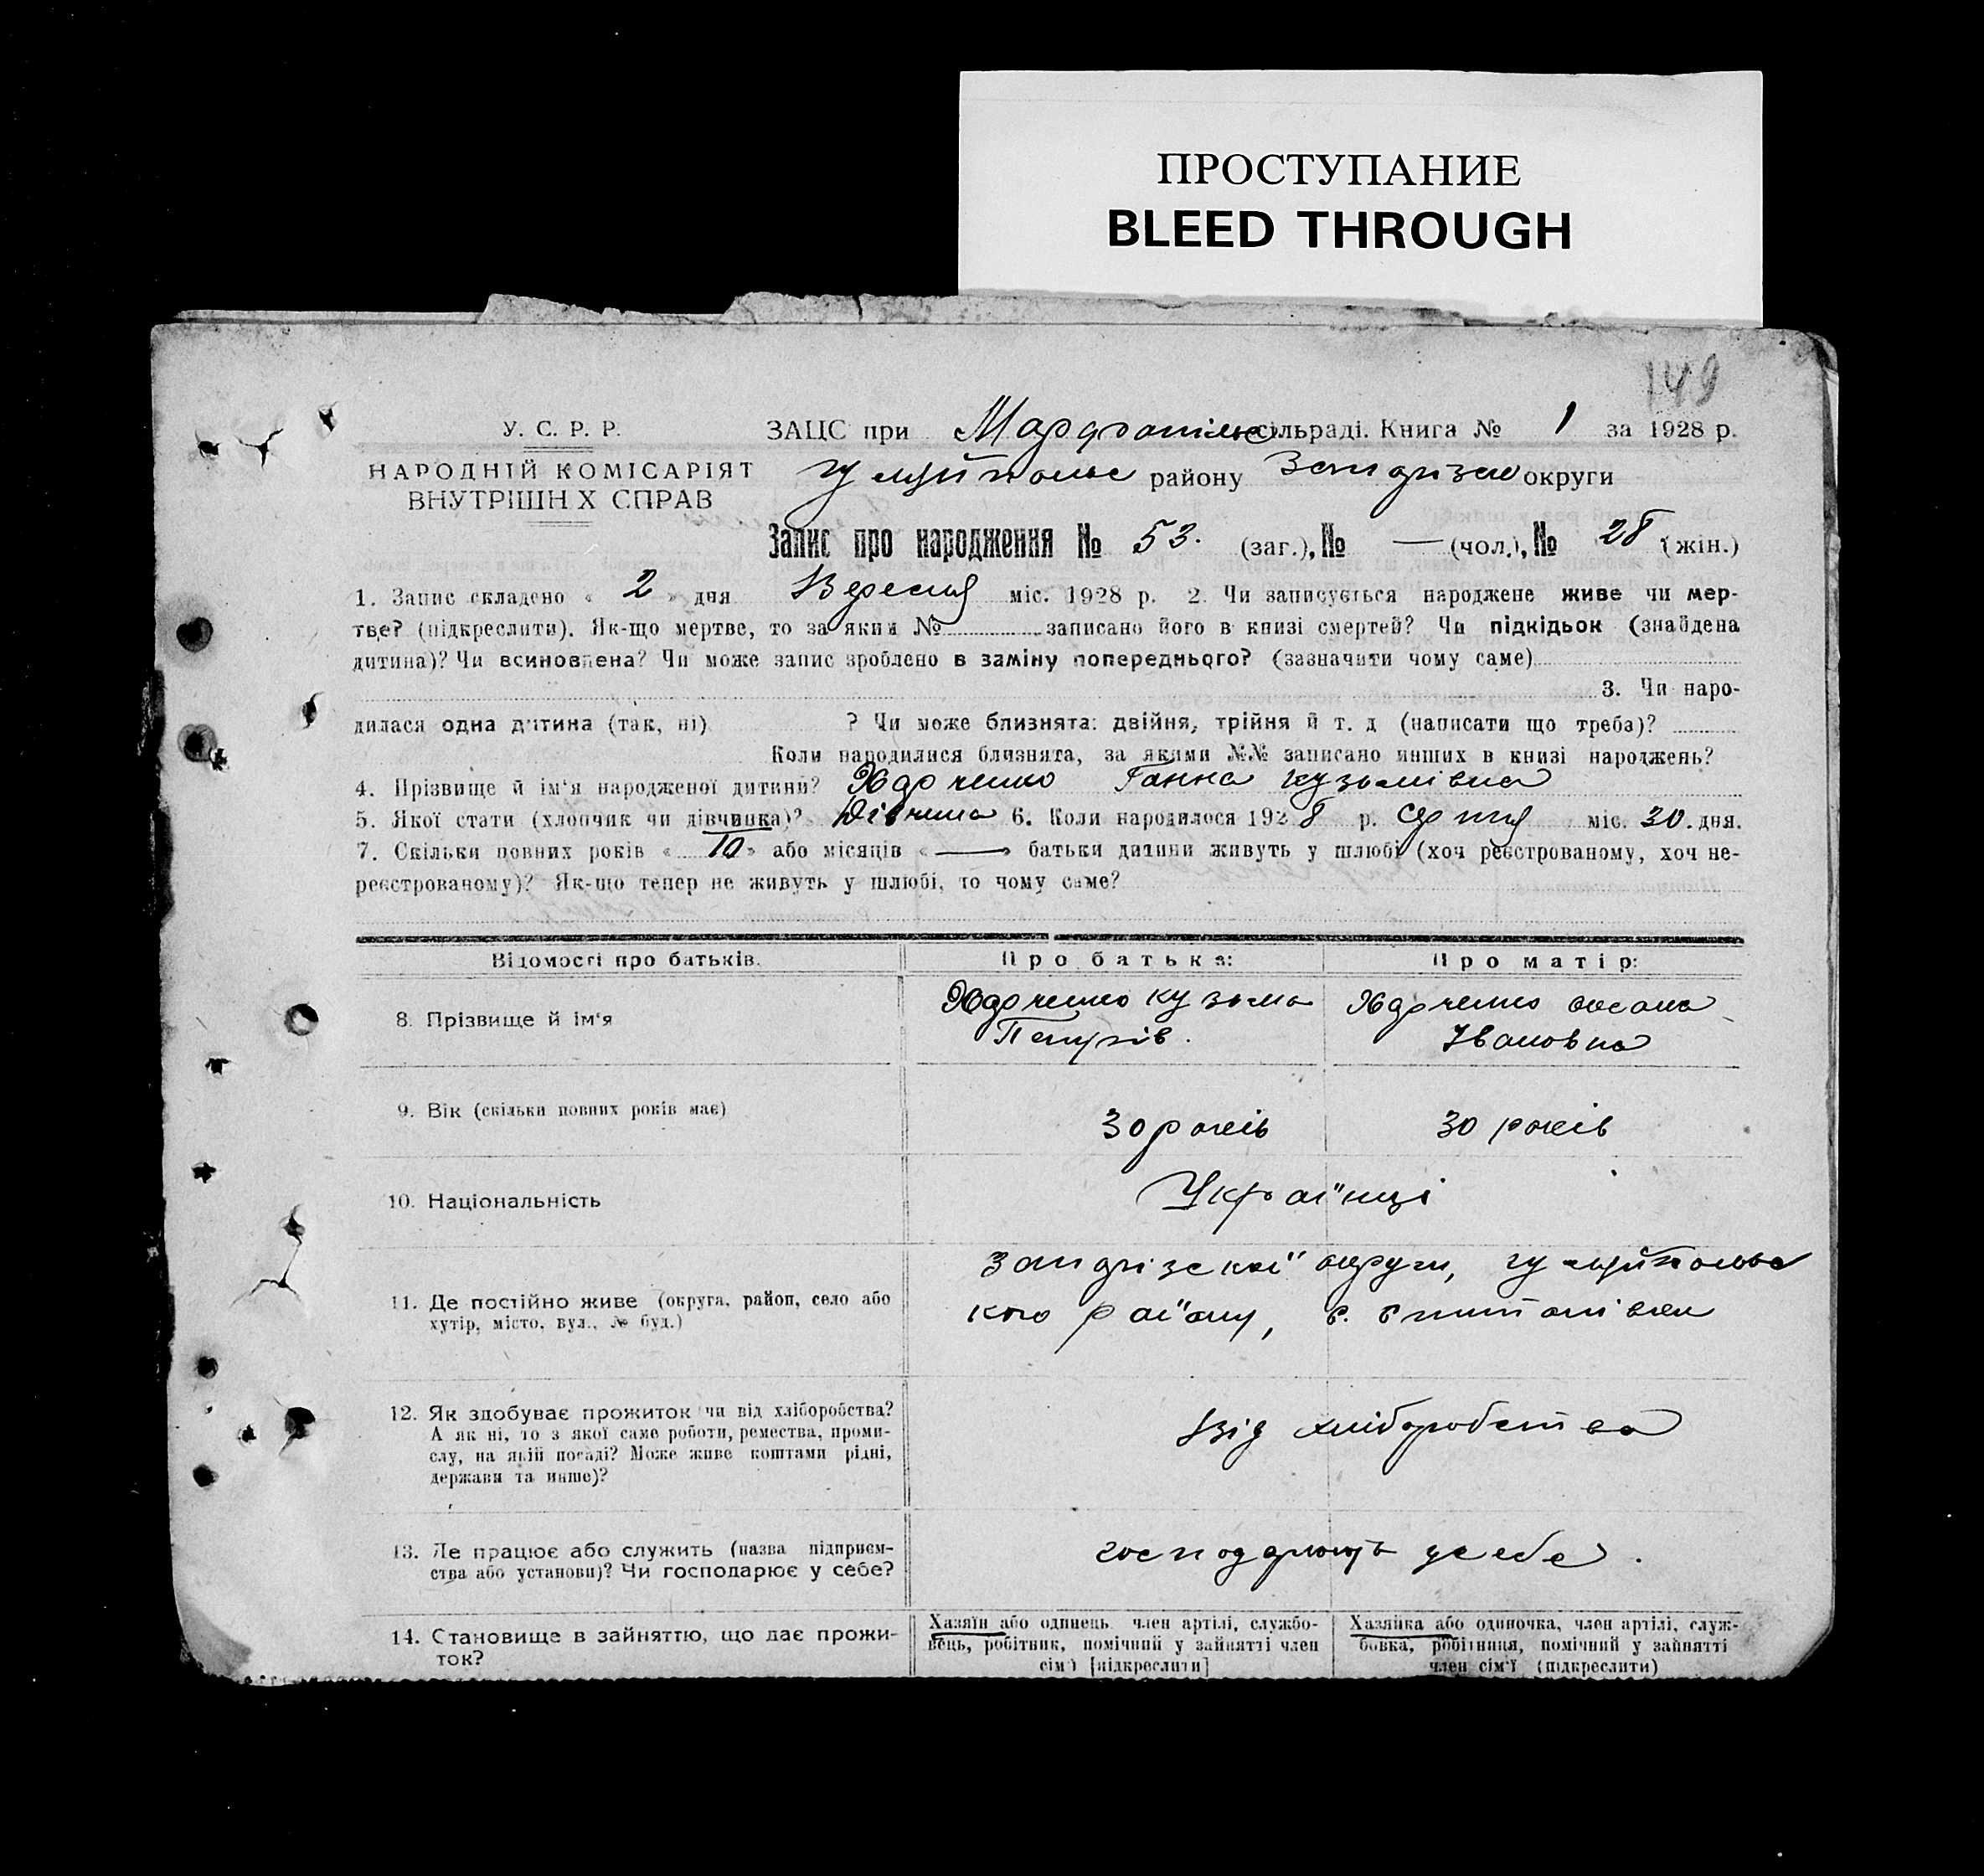 ПРОСТУПАНИЕ
BLEED THROUGH
149
У. С. Р. Р.
НАРОДНІЙ КОМІСАРІЯТ
ВНУТРІШНІХ СПРАВ
ЗАЦС при Марфопільс сільраді. Книга № 1 за 1928 р.
Гуляйпольс району Запоріжс округи
Запис про народження № 53. (заг.), № — (чол.), № 28 (жін.)
1. Запис складено « 2 » дня Вересня міс. 1928 р. 2. Чи записується народжене живе чи мер-
тве? (підкреслити). Як-що мертве, то за яким № записано його в книзі смертей? Чи підкідьок (знайдена
дитина)? Чи всиновлена? Чи може запис зроблено в заміну попереднього? (зазначити чому саме)
3. Чи наро-
дилася одна дитина (так, ні) ? Чи може близнята: двійня, трійня й т. д (написати що треба)?
Коли народилися близнята, за якими №№ записано инших в книзі народжень?
4. Прізвище й ім'я народженої дитини? Ганна Кузьмівна
5. Якої стати (хлопчик чи дівчинка)? Дівчина 6. Коли народилося 1928 р. Серпня міс. 30. дня.
7. Скільки повних років « 10 » або місяців « — » батьки дитини живуть у шлюбі (хоч реєстрованому, хоч не-
реєстрованому)? Як-що тепер не живуть у шлюбі, то чому саме?
Відомості про батьків. Про батька: Про матір:
8. Прізвище й ім'я
Кузьма
Петрів.
Оксана
Івановна
9. Вік (скільки повних років має) 30 років 30 років
10. Національність Українці
11. Де постійно живе (округа, район, село або
хутір, місто, вул., № буд.)
Запорізскої округи, Гуляйпольс
кого району, с.
12. Як здобуває прожиток чи від хліборобства?
А як ні, то з якої саме роботи, ремества, проми-
слу, на якій посаді? Може живе коштами рідні,
держави та инше)?
Від хліборобства
13. Де працює або служить (назва підприєм-
ства або установи)? Чи господарює у себе?
господарюють у себе.
14. Становище в зайняттю, що дає прожи-
ток?
Хазяїн або одинець член артілі, службо-
вець, робітник, помічний у зайнятті член
сім'ї [підкреслити]
Хазяйка або одиночка, член артілі, служ-
бовка, робітниця, помічний у зайнятті
член сім'ї (підкреслити)